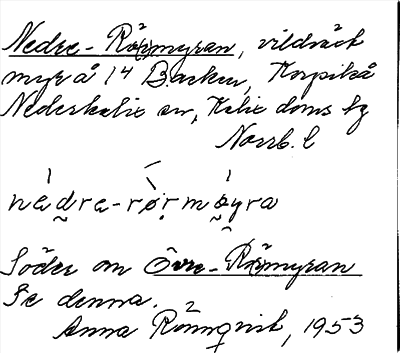 Nedre-Rö(r)myran, vildväxt
myr å 14 Backen, Korpikå
Nederkalix sn, Kalix doms hg
Norrb. l
nèdre-rør møyra
Söder om Övre-Rö(r)myran
Se denna.
Anna Rönnqvist, 1953